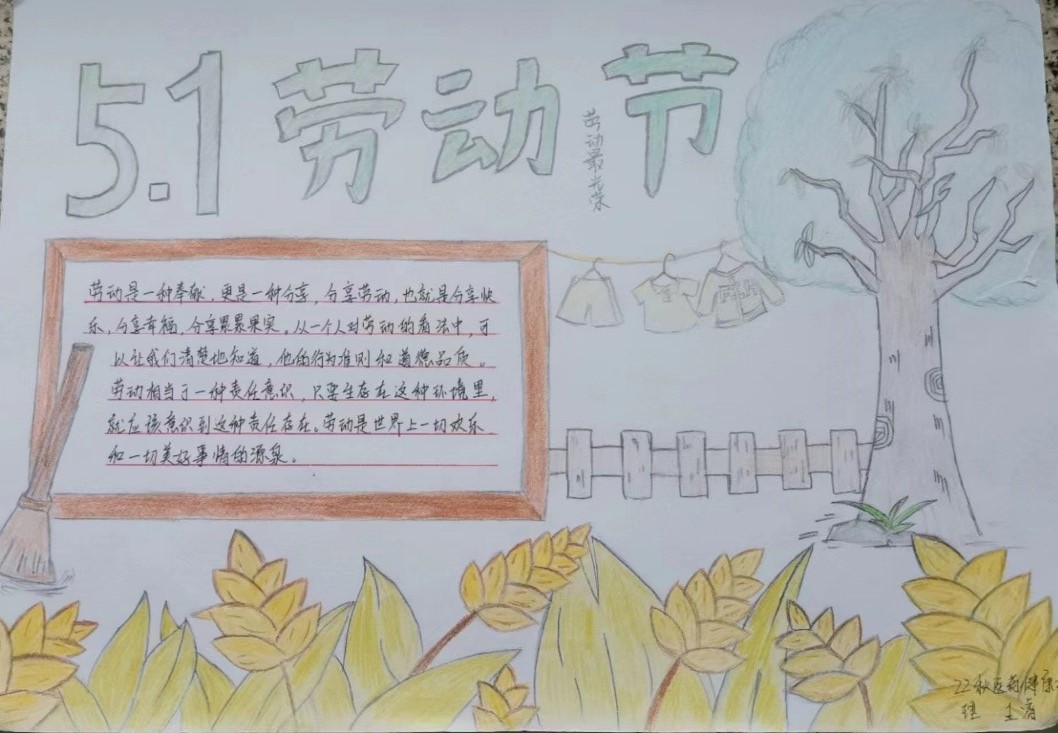 5.1劳动节
劳动最光荣
劳动是一种奉献，更是一种分享，分享劳动，也就是分享快
乐，分享幸福，分享累累果实。从一个人对劳动的看法中，可
以让我们清楚地知道，他的行为准则和道德品质。
劳动相当于一种责任意识，只要生存在这种环境里，
就应该意识到这种责任存在。劳动是世界上一切欢乐
和一切美好事情的源泉。
22秋医药健康